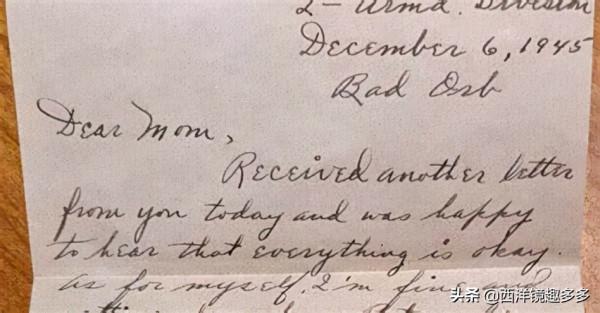 2- Armd. Division
December 6, 1945
Bad Orb
Dear Mom,
Received another letter
from you today and was happy
to hear that everything is okay.
As for myself, I'm fine and
头条 @西洋镜趣多多